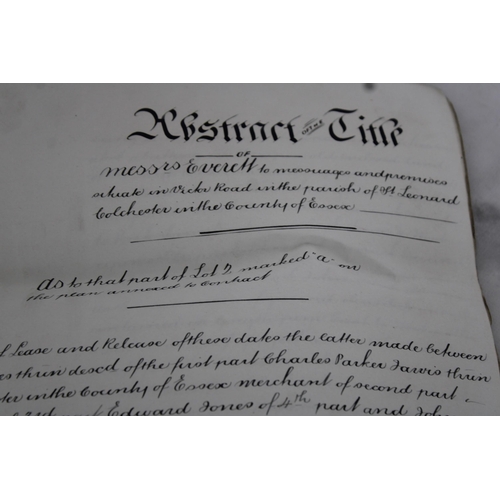 Abstract of the Title
OF
Messrs Everett to messuages and premises
situate in Victor Road in the parish of St. Leonard
Colchester in the County of Essex
As to that part of Lot 2 marked "a" on
the plan annexed to Contract
Lease and Release of these dates the latter made between
thrin descd of the first part Charles Parker Jarvis thrin
in the County of Essex merchant of second part
Edward Jones of 4th part and